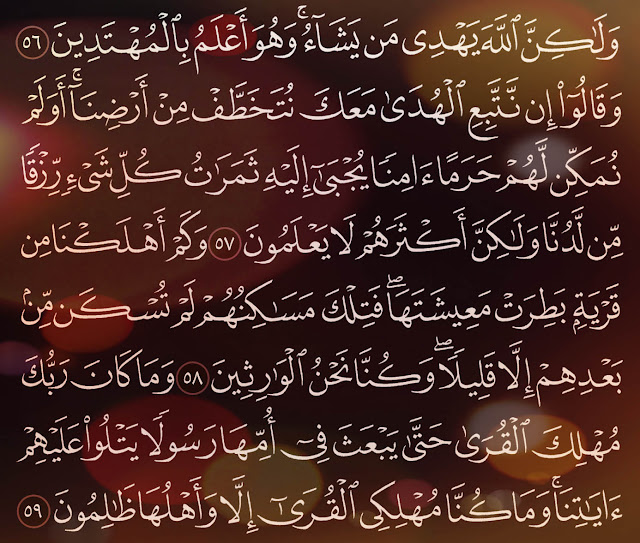 وَلَٰكِنَّ ٱللَّهَ يَهْدِى مَن يَشَآءُ ۚ وَهُوَ أَعْلَمُ بِٱلْمُهْتَدِينَ ٥٦
وَقَالُوٓا۟ إِن نَّتَّبِعِ ٱلْهُدَىٰ مَعَكَ نُتَخَطَّفْ مِنْ أَرْضِنَآ ۚ أَوَلَمْ
نُمَكِّن لَّهُمْ حَرَمًا ءَامِنًا يُجْبَىٰٓ إِلَيْهِ ثَمَرَٰتُ كُلِّ شَىْءٍ رِّزْقًا
مِّن لَّدُنَّا وَلَٰكِنَّ أَكْثَرَهُمْ لَا يَعْلَمُونَ ٥٧ وَكَمْ أَهْلَكْنَا مِن
قَرْيَةٍۭ بَطِرَتْ مَعِيشَتَهَا ۖ فَتِلْكَ مَسَٰكِنُهُمْ لَمْ تُسْكَن مِّنۢ
بَعْدِهِمْ إِلَّا قَلِيلًا ۖ وَكُنَّا نَحْنُ ٱلْوَٰرِثِينَ ٥٨ وَمَا كَانَ رَبُّكَ
مُهْلِكَ ٱلْقُرَىٰ حَتَّىٰ يَبْعَثَ فِىٓ أُمِّهَا رَسُولًا يَتْلُوا۟ عَلَيْهِمْ
ءَايَٰتِنَا ۚ وَمَا كُنَّا مُهْلِكِى ٱلْقُرَىٰٓ إِلَّا وَأَهْلُهَا ظَٰلِمُونَ ٥٩